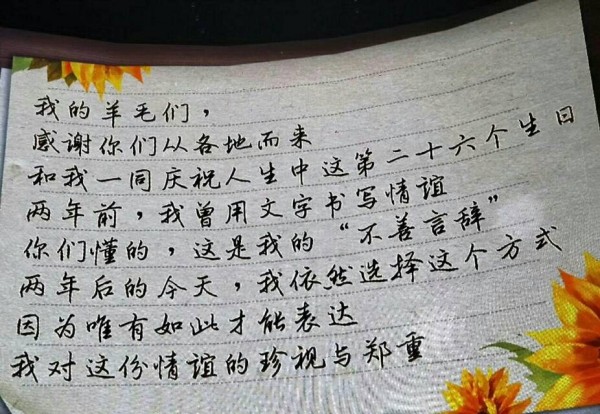 我的羊毛们，
感谢你们从各地而来
和我一同庆祝人生中这第二十六个生日
两年前，我曾用文字书写情谊
你们懂的，这是我的“不善言辞”
两年后的今天，我依然选择这个方式
因为唯有如此才能表达
我对这份情谊的珍视与郑重